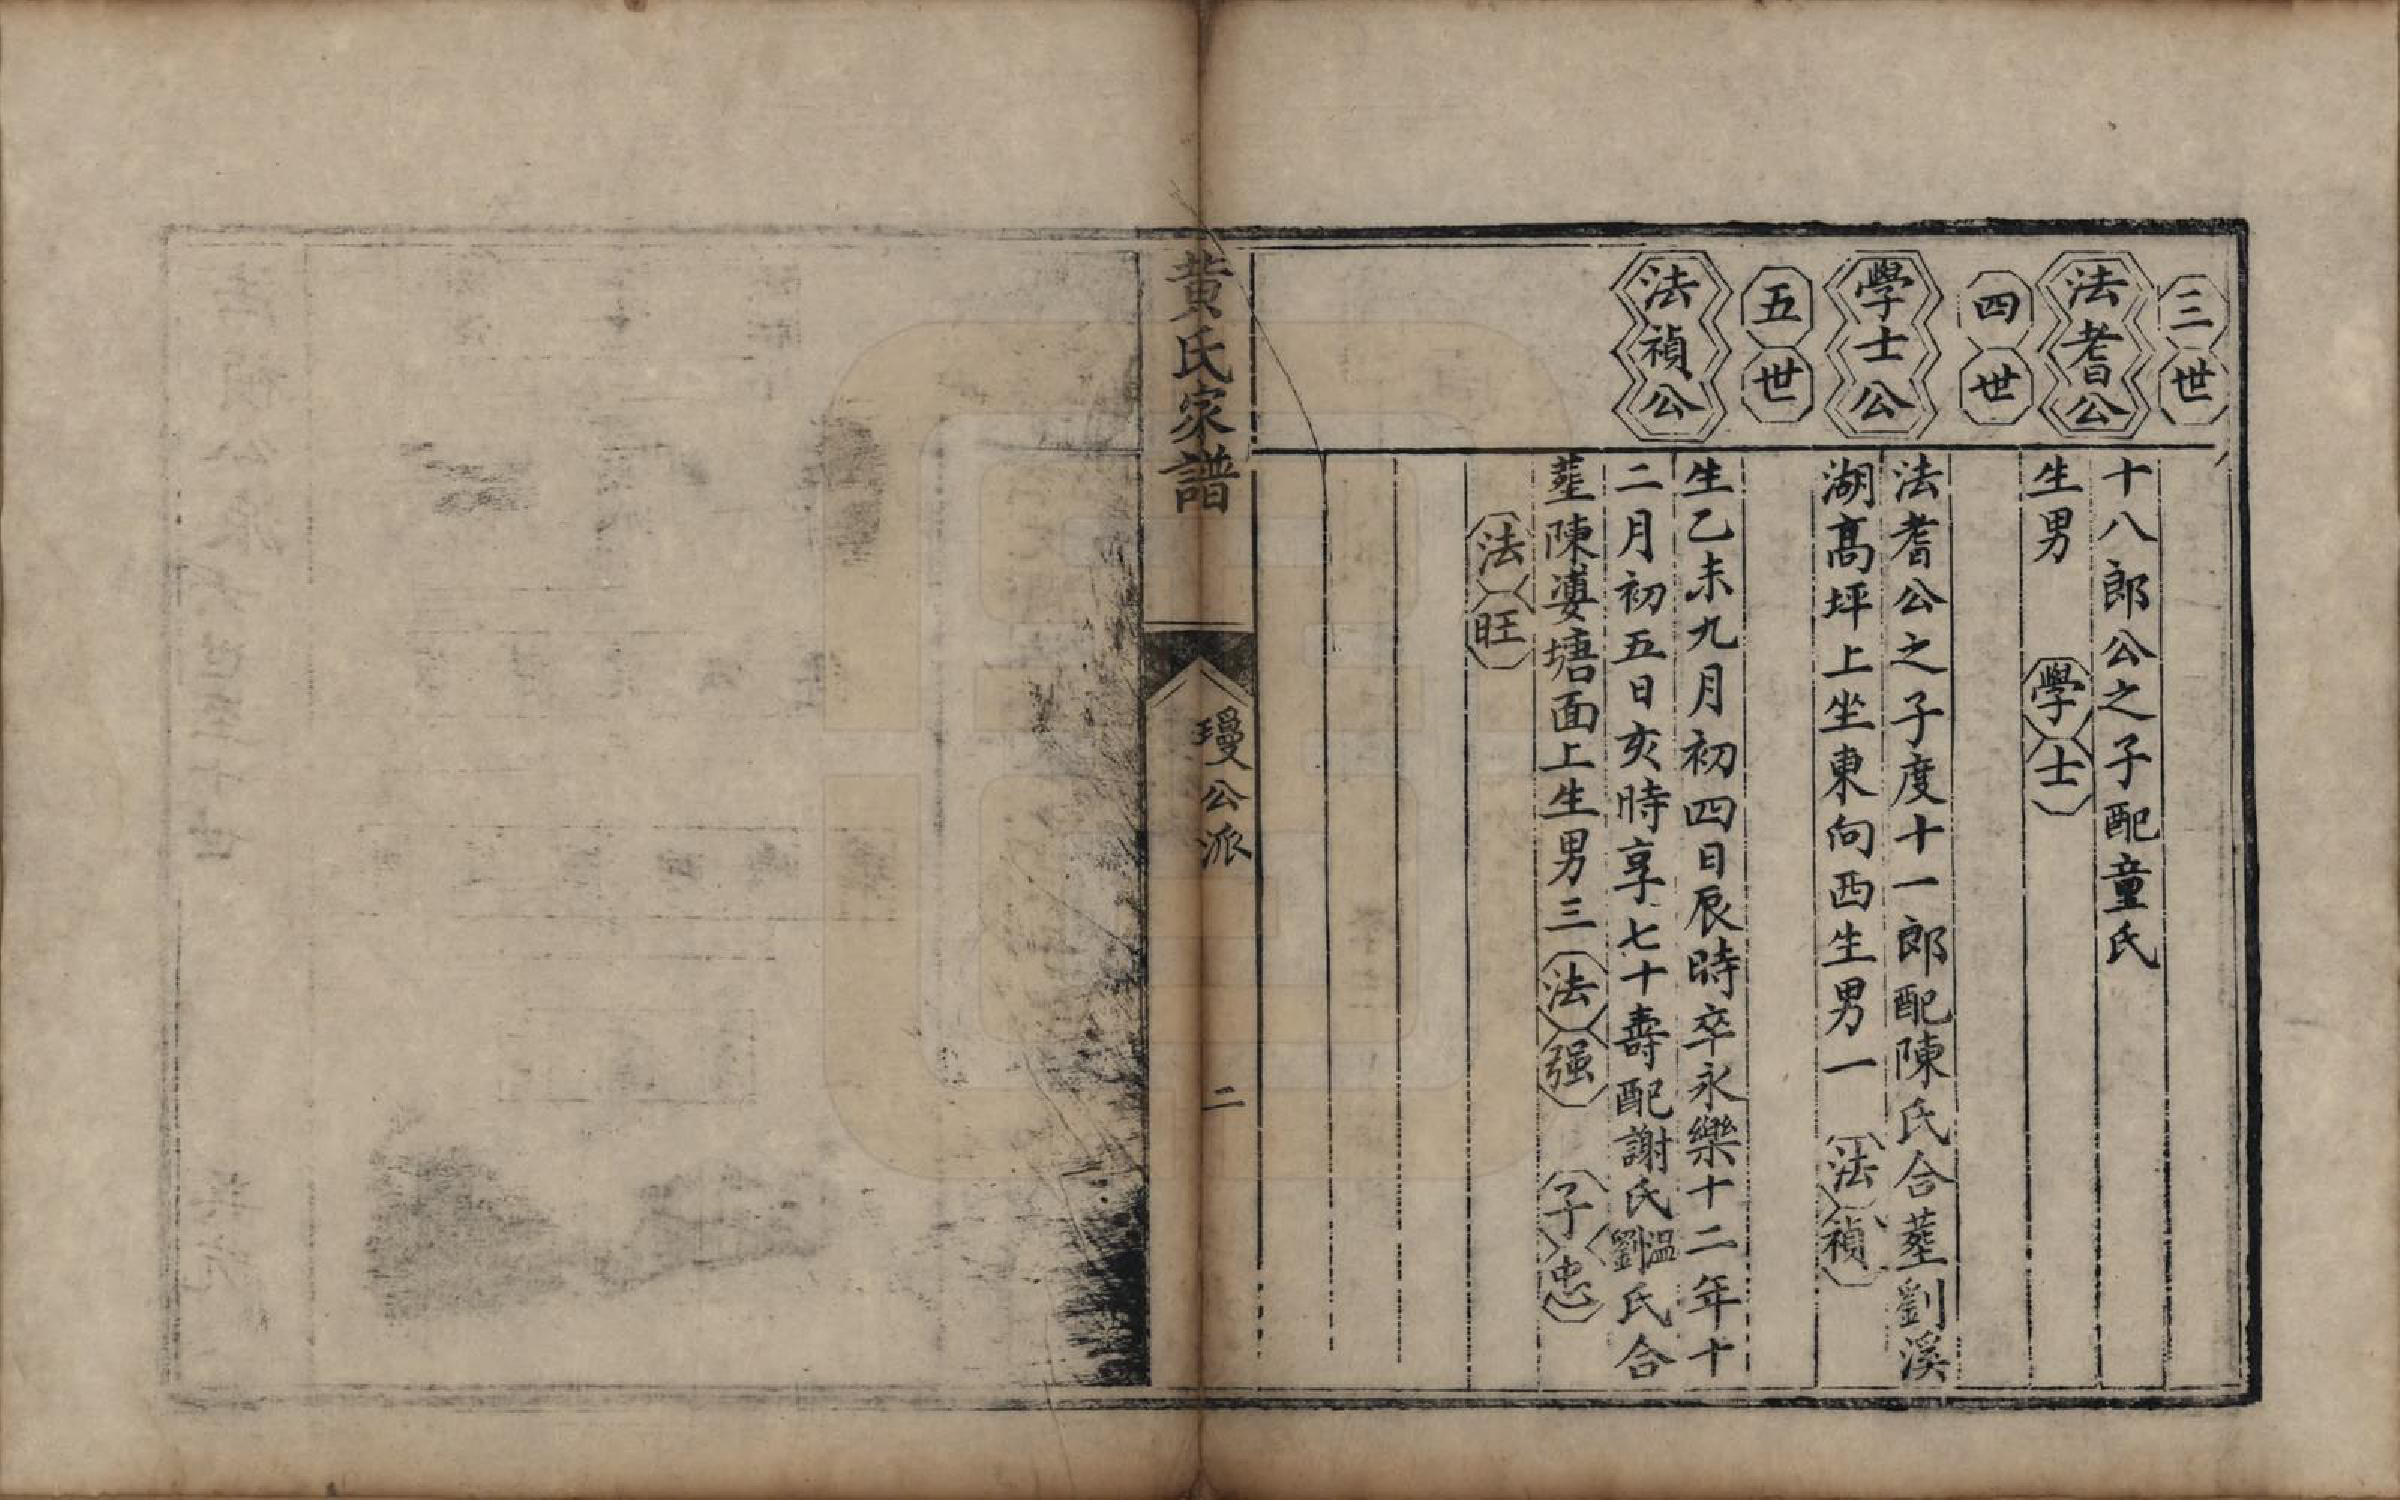 三世
法耆公
十八郎公之子配童氏
生男 學士
四世
學士公
法耆公之子度十一郎配陳氏合塟劉溪
湖髙坪上坐東向西生男一 法禎
五世
法禎公
生乙未九月初四日辰時卒永樂十二年十
二月初五日亥時享七十壽配謝氏溫劉氏合
塟陳婆塘面上生男三 法强 子忠
法旺
黄氏家譜
公派
二